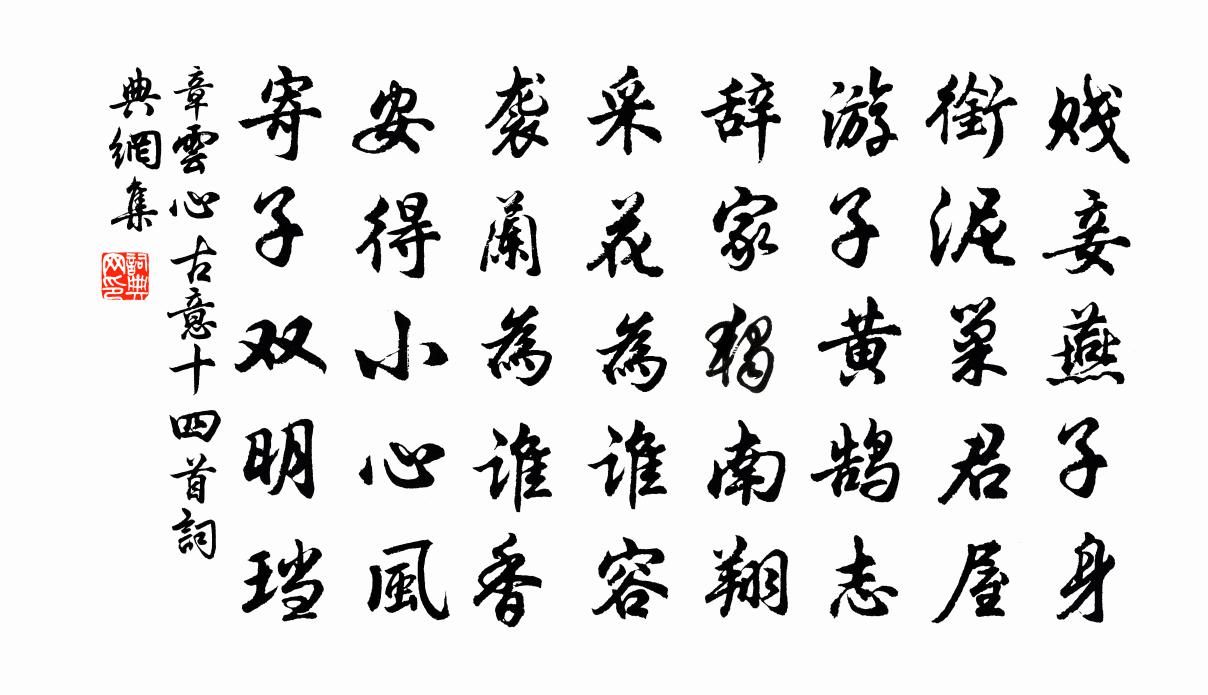 贱妾燕子身
銜泥巢君屋
游子黄鹄志
辞家独南翔
采花為谁容
袭蘭為谁香
安得小心風
寄子双明珰
章雲心古意十四首詞
典網集
詞典
网印